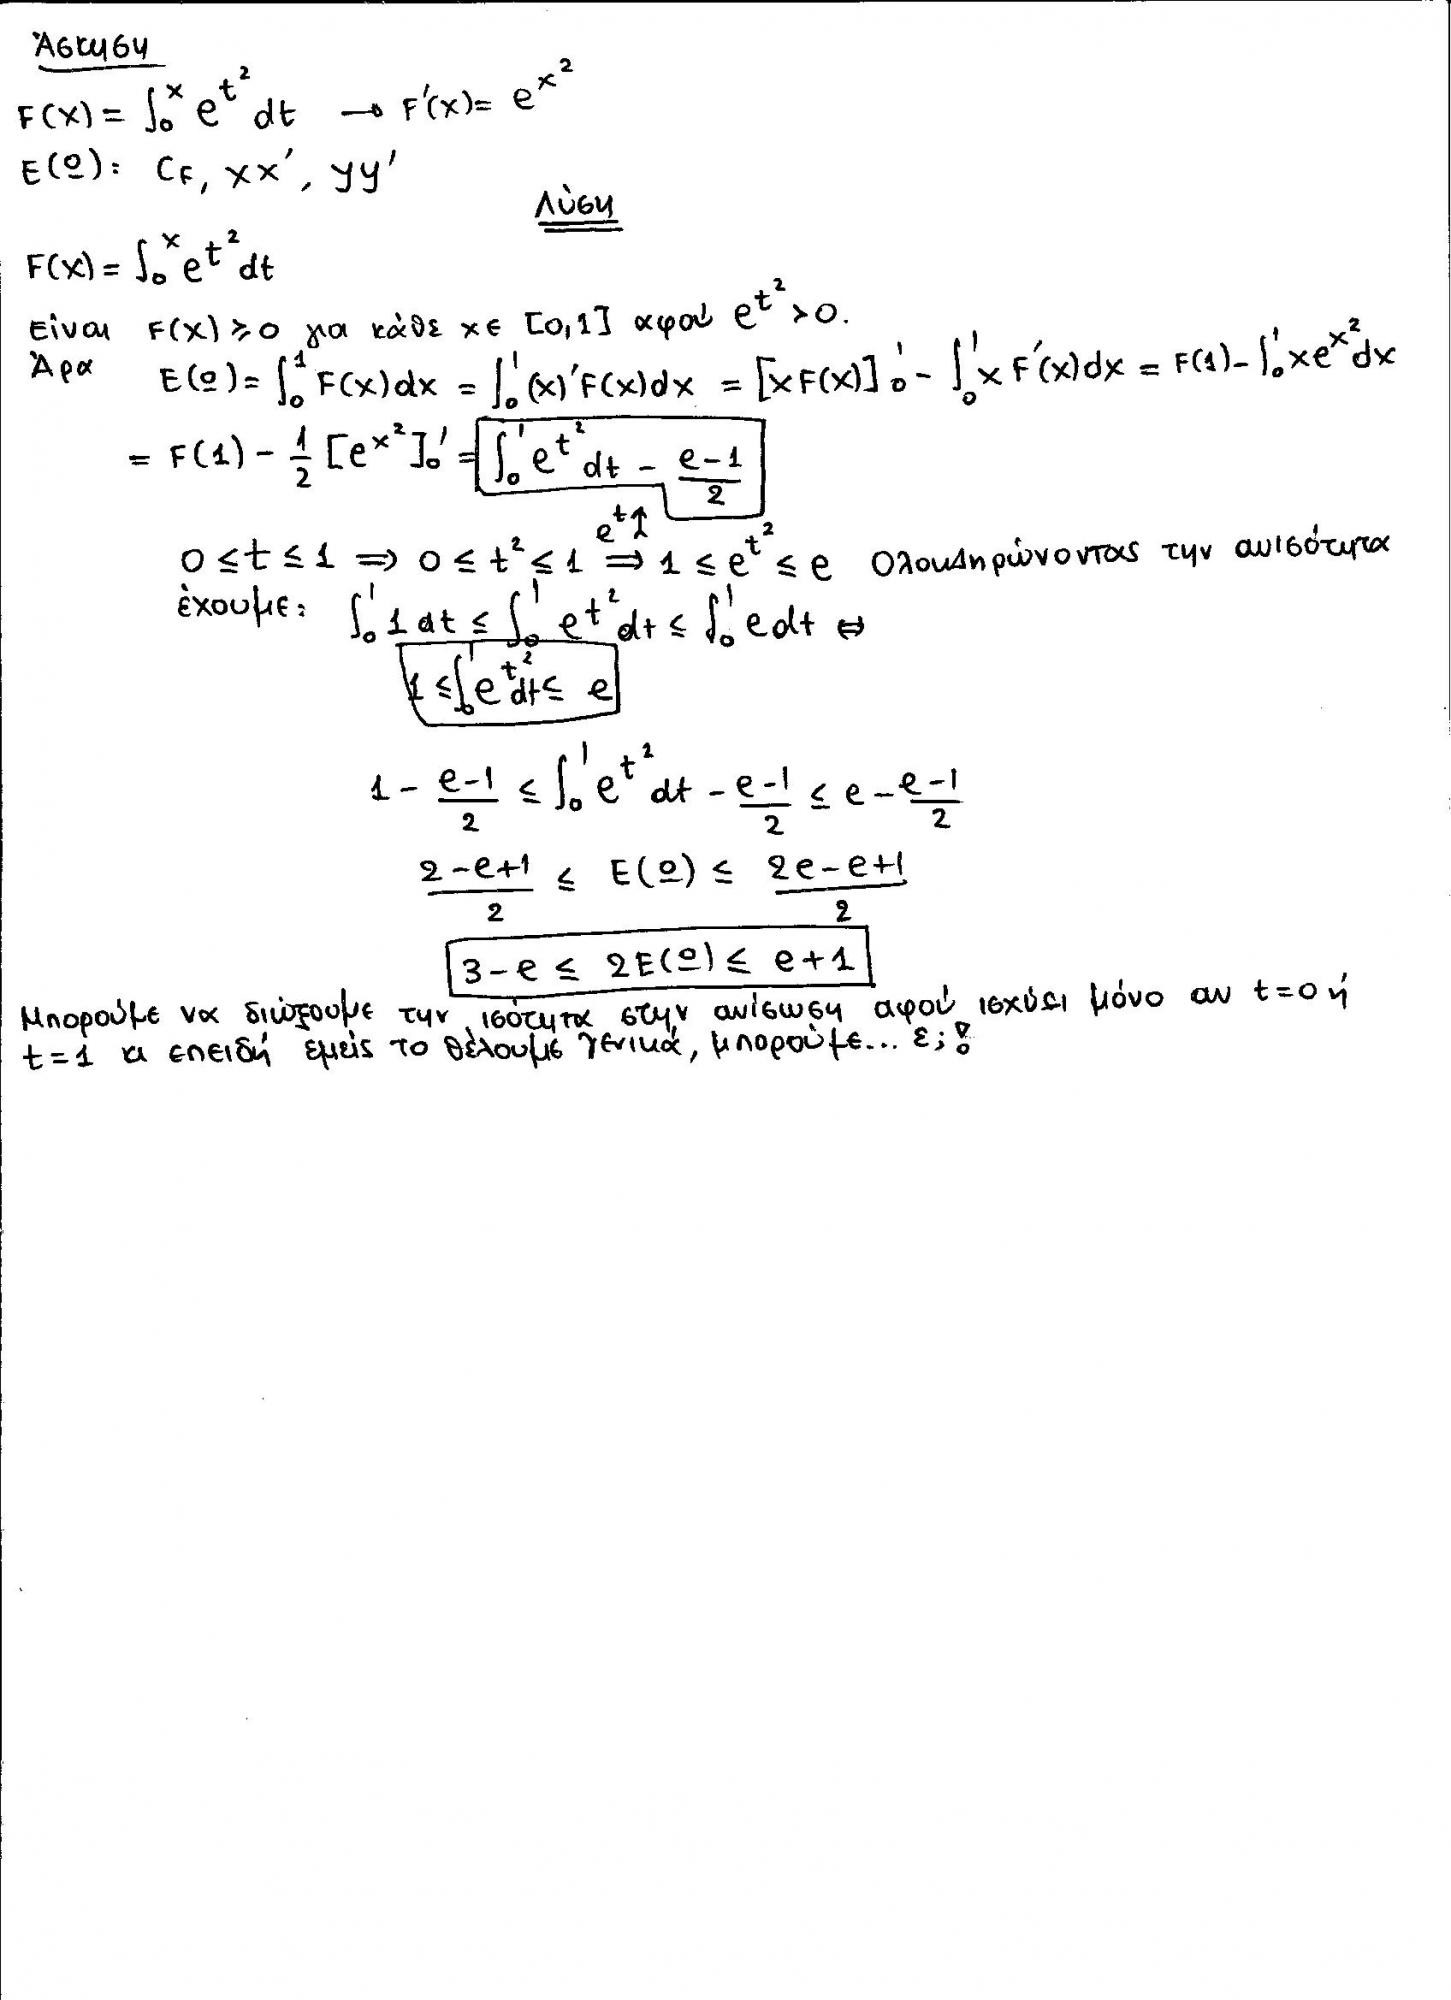 Άσκηση
F(x) = ∫₀ˣ e^{t²} dt → F'(x) = e^{x²}
E(Ω): C_F, xx', yy'
Λύση
F(x) = ∫₀ˣ e^{t²} dt
Είναι F(x) ≥ 0 για κάθε x ∈ [0,1] αφού e^{t²} > 0.
Άρα E(Ω) = ∫₀¹ F(x)dx = ∫₀¹ (x)'F(x)dx = [xF(x)]₀¹ - ∫₀¹ x F'(x)dx = F(1) - ∫₀¹ xe^{x²}dx
= F(1) - 1/2 [e^{x²}]₀¹ = ∫₀¹ e^{t²} dt - (e-1)/2
e^t ↑
0 ≤ t ≤ 1 ⇒ 0 ≤ t² ≤ 1 ⇒ 1 ≤ e^{t²} ≤ e Ολοκληρώνοντας την ανισότητα
έχουμε: ∫₀¹ 1 dt ≤ ∫₀¹ e^{t²} dt ≤ ∫₀¹ e dt ⇔
1 ≤ ∫₀¹ e^{t²} dt ≤ e
1 - (e-1)/2 ≤ ∫₀¹ e^{t²} dt - (e-1)/2 ≤ e - (e-1)/2
(2-e+1)/2 ≤ E(Ω) ≤ (2e-e+1)/2
3-e ≤ 2E(Ω) ≤ e+1
Μπορούμε να διώξουμε την ισότητα στην ανίσωση αφού ισχύει μόνο αν t=0 ή
t=1 κι επειδή εμείς το θέλουμε γενικά, μπορούμε... ε;!